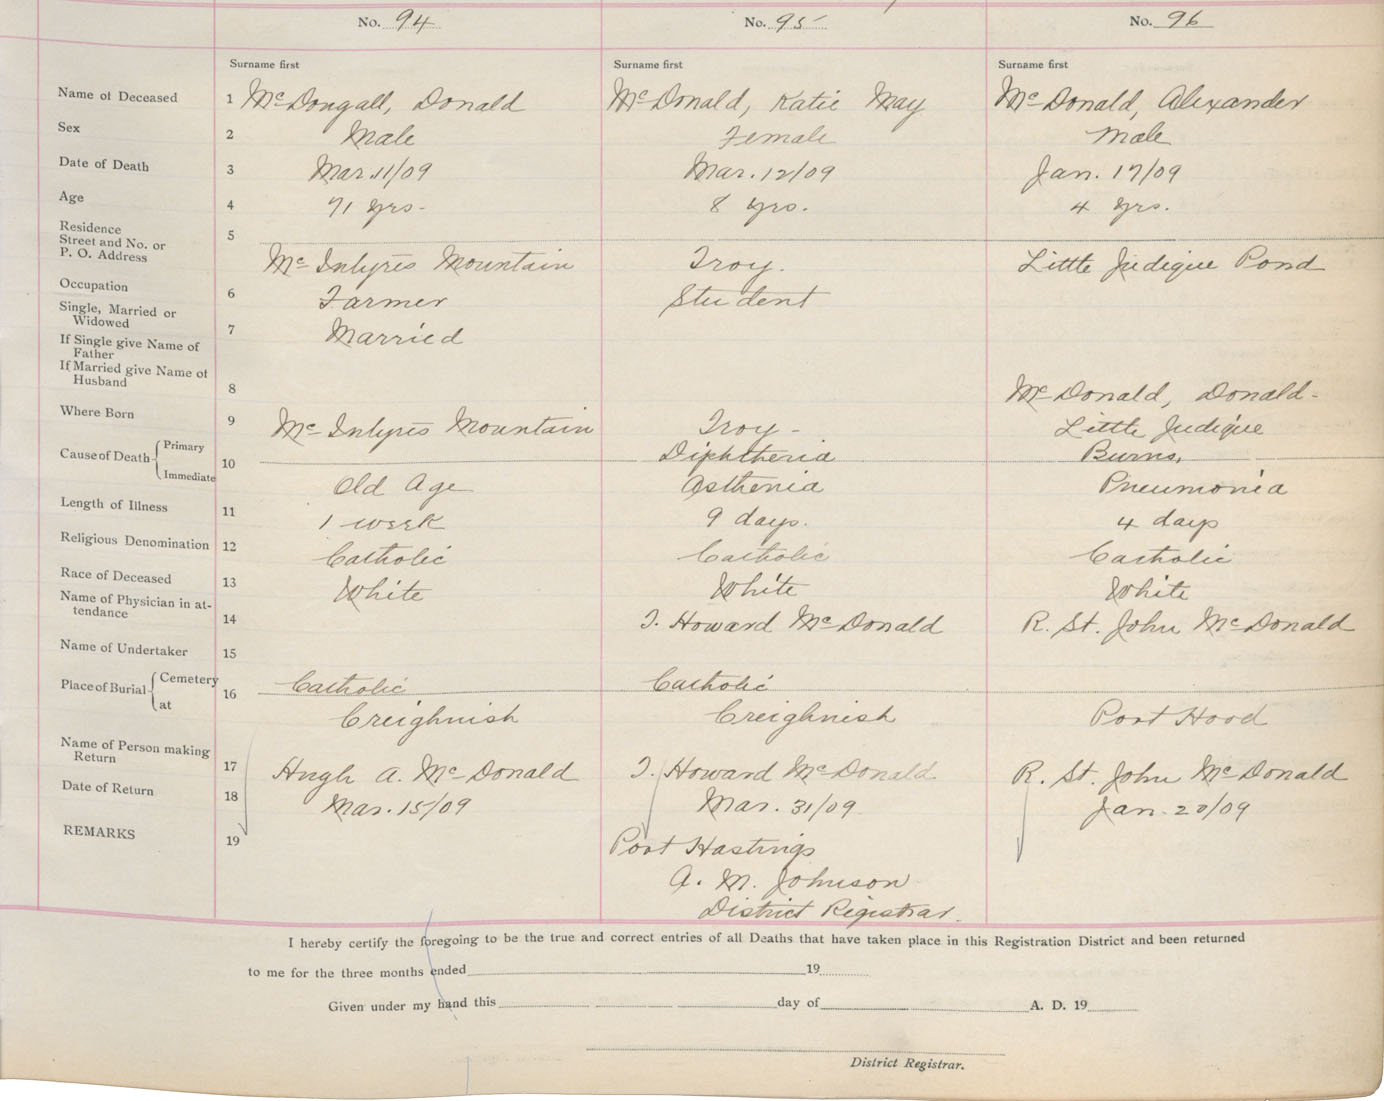 No. 94 No. 95 No. 96
Surname first Surname first Surname first
Name of Deceased 1 McDougall, Donald McDonald, Katie May McDonald, Alexander
Sex 2 Male Female Male
Date of Death 3 Mar. 11/09 Mar. 12/09 Jan. 17/09
Age 4 71 yrs. 8 yrs. 4 yrs.
Residence
Street and No. or
P. O. Address 5 McIntyres Mountain Troy. Little Judique Pond
Occupation 6 Farmer Student
Single, Married or
Widowed 7 Married
If Single give Name of
Father
If Married give Name of
Husband 8 McDonald, Donald-
Where Born 9 McIntyres Mountain Troy - Little Judique
Cause of Death Primary 10 Diphtheria Burns.
Immediate Old Age Asthenia Pneumonia
Length of Illness 11 1 week 9 days. 4 days
Religious Denomination 12 Catholic Catholic Catholic
Race of Deceased 13 White White White
Name of Physician in at-
tendance 14 T. Howard McDonald R. St. John McDonald
Name of Undertaker 15
Place of Burial Cemetery 16 Catholic Catholic
at Creighnish Creighnish Port Hood
Name of Person making
Return 17 Hugh A. McDonald T. Howard McDonald R. St. John McDonald
Date of Return 18 Mar. 15/09 Mar. 31/09 Jan. 20/09
REMARKS 19 Port Hastings
A. M. Johnson
District Registrar.
I hereby certify the foregoing to be the true and correct entries of all Deaths that have taken place in this Registration District and been returned
to me for the three months ended 19
Given under my hand this day of A. D. 19
District Registrar.